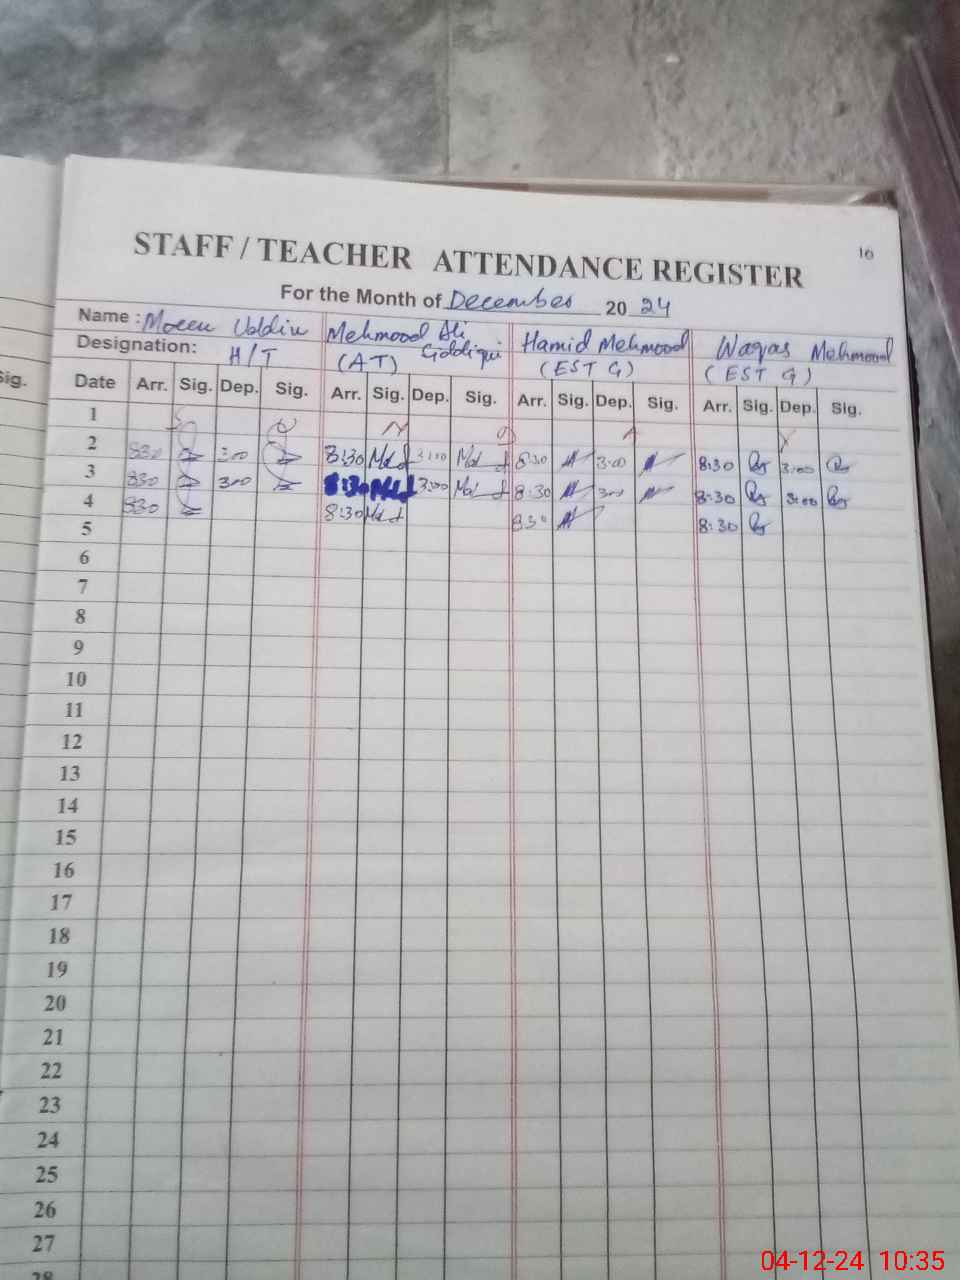 16
STAFF / TEACHER ATTENDANCE REGISTER
For the Month of December 20 24
Name : Moeen Uddin Mehmood Ali Siddiqui Hamid Mehmood Waqas Mehmood
Designation: H/T (AT) (EST G) (EST G)
Sig.
Date Arr. Sig. Dep. Sig. Arr. Sig. Dep. Sig. Arr. Sig. Dep. Sig. Arr. Sig. Dep. Sig.
1 S U N D A Y
2 830 300 8:30 3:00 8:30 3:00 8:30 3:00
3 830 300 8:30 3:00 8:30 300 8:30 3:00
4 830 8:30 830 8:30
5
6
7
8
9
10
11
12
13
14
15
16
17
18
19
20
21
22
23
24
25
26
27
28
04-12-24 10:35